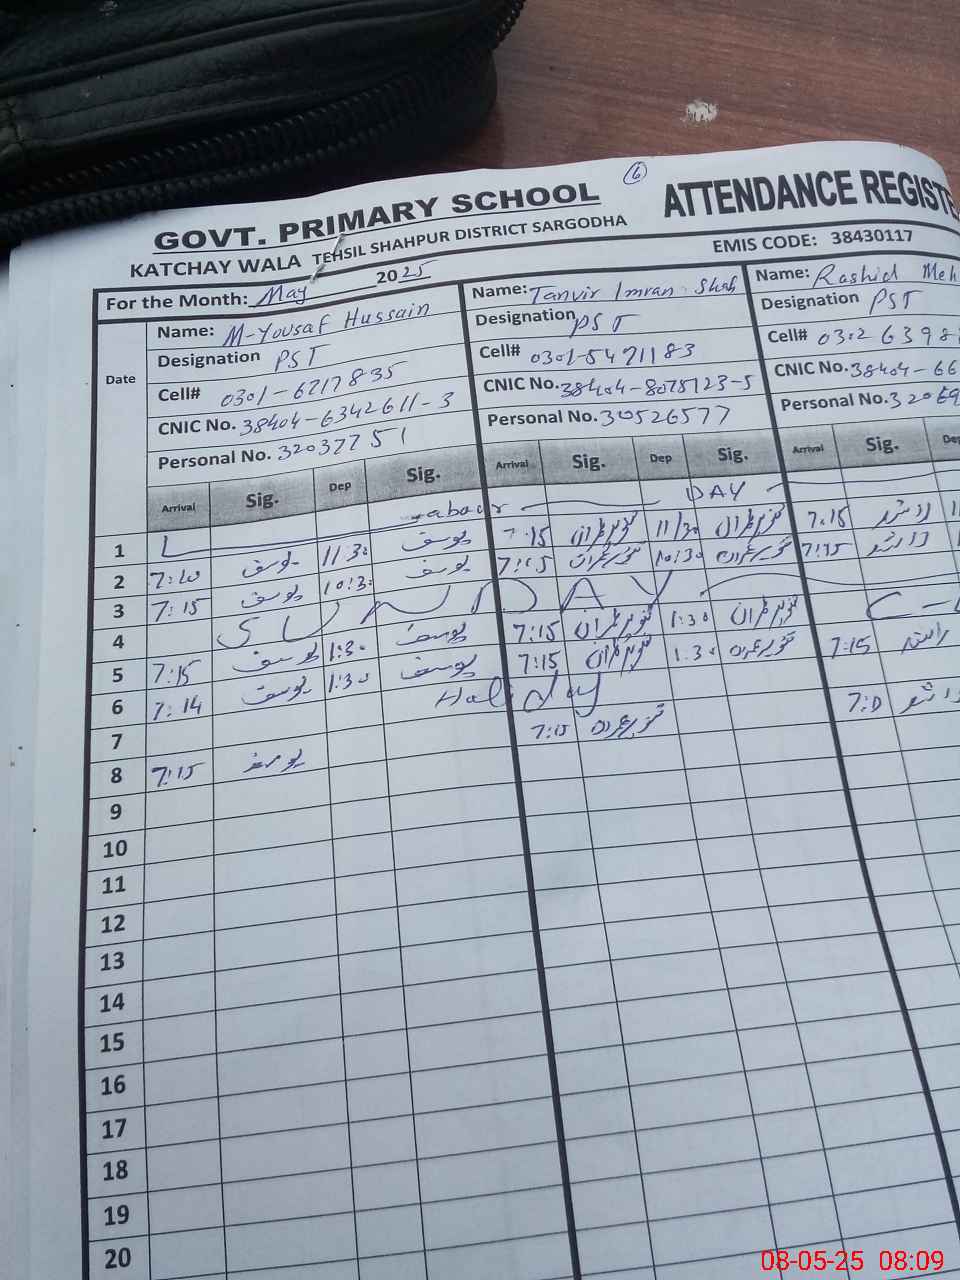 6
GOVT. PRIMARY SCHOOL ATTENDANCE REGISTE
KATCHAY WALA TEHSIL SHAHPUR DISTRICT SARGODHA EMIS CODE: 38430117
For the Month: May 2025
Date
Name: M-Yousaf Hussain
Designation PST
Cell# 0301-6217835
CNIC No. 38404-6342611-3
Personal No. 32037751
Name: Tanvir Imran Shah
Designation PST
Cell# 0301-5471183
CNIC No. 38404-8075123-5
Personal No. 30526577
Name: Rashid Meh
Designation PST
Cell# 0302 6398
CNIC No. 38404-66
Personal No. 320
Arrival Sig. Dep Sig. Arrival Sig. Dep Sig. Arrival Sig. Dep
1 Labour DAY
2 7:10 یوسف 11:30 یوسف 7:15 تنویر عمران 11/30 تنویر عمران 7:15 راشد
3 7:15 یوسف 10:30 یوسف 7:15 تنویر عمران 10:30 تنویر عمران 7:15 راشد
4 SUNDAY
5 7:15 یوسف 1:30 یوسف 7:15 تنویر عمران 1:30 تنویر عمران
6 7:14 یوسف 1:30 یوسف 7:15 تنویر عمران 1:30 تنویر عمران 7:15 راشد
7 Holiday
8 7:15 یوسف 7:15 تنویر عمران راشد
9
10
11
12
13
14
15
16
17
18
19
20
08-05-25 08:09